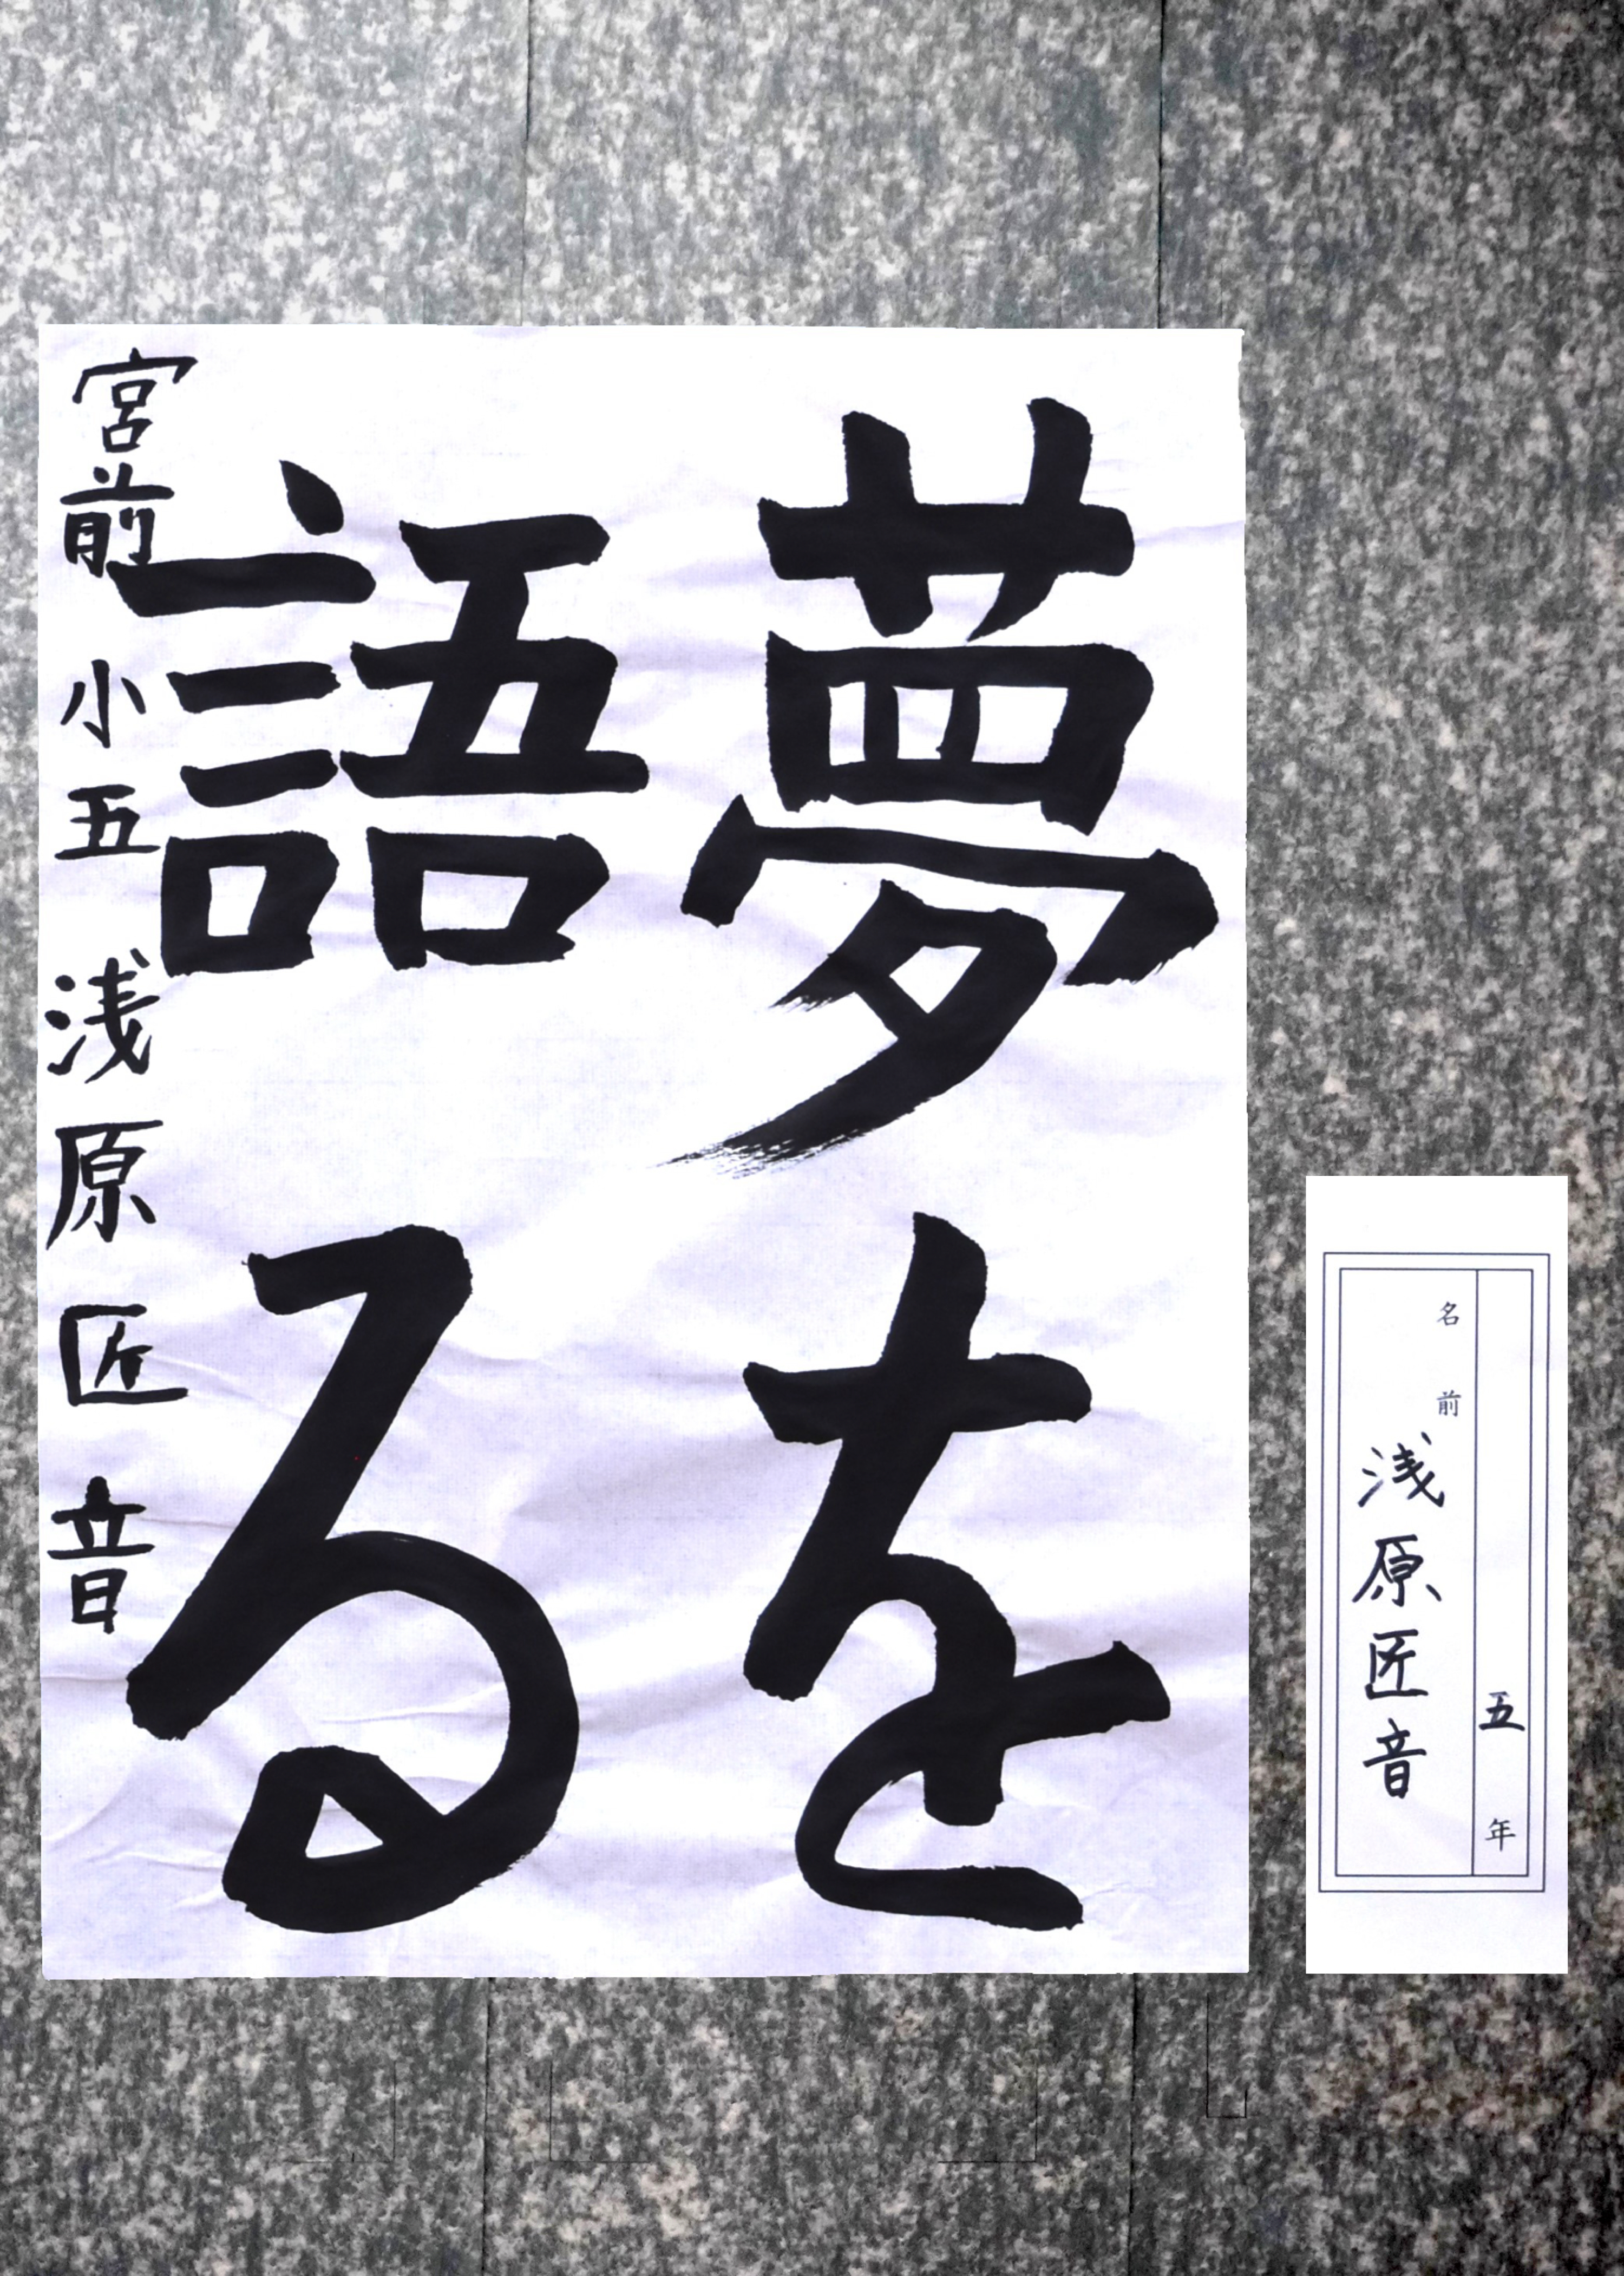 夢を
語る
宮前小五浅原匠音
五年
名前
浅原匠音